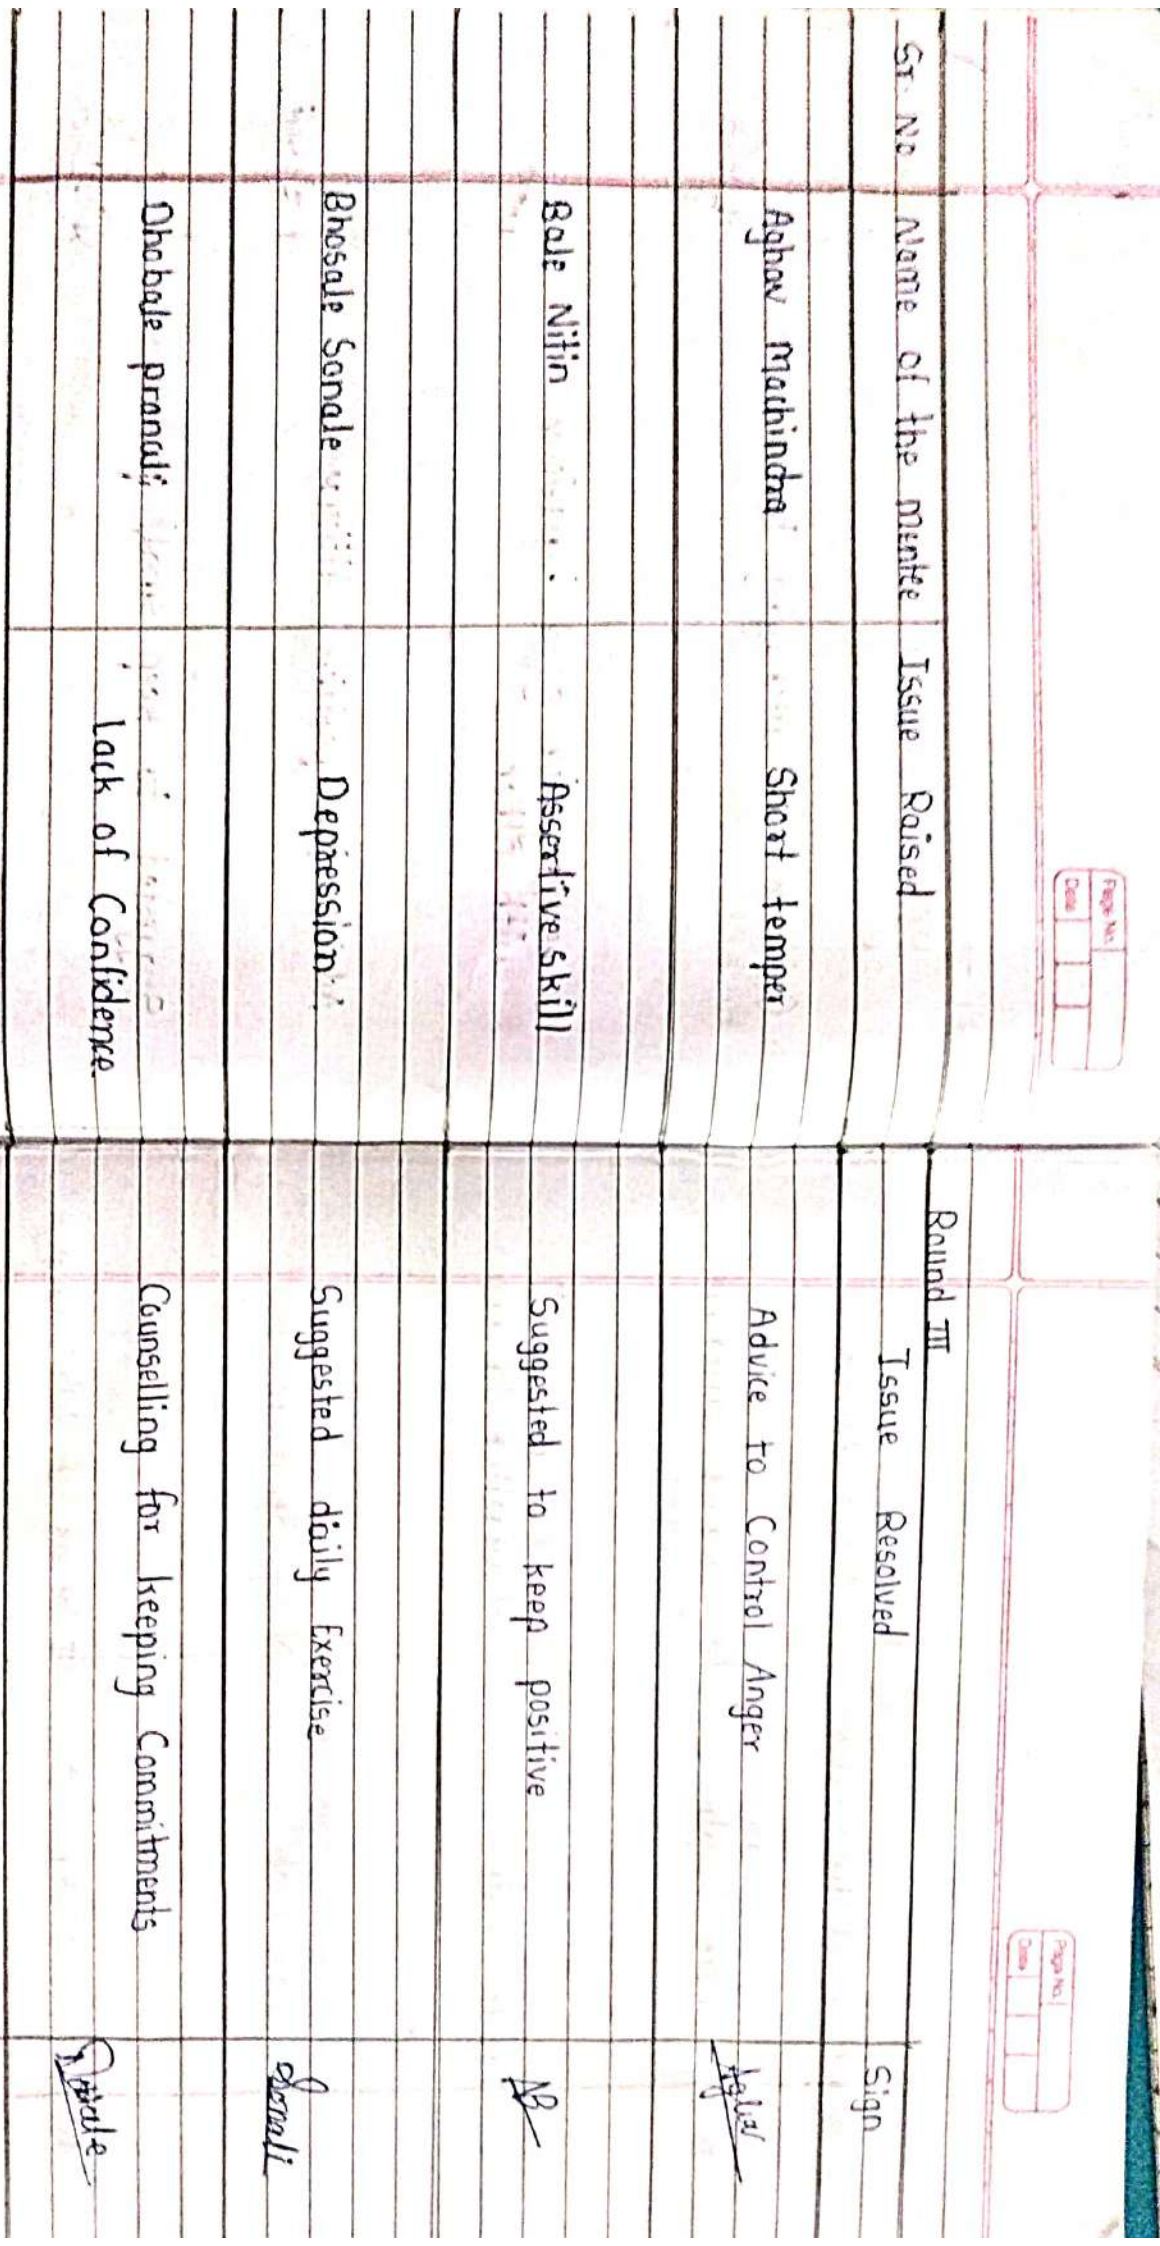 Page No.
Date
Page No.
Date
Round III
Sr. No Name of the mentee Issue Raised Issue Resolved Sign
Aghav Machindra Short temper Advice to Control Anger Aghav
Bale Nitin Assertive skill Suggested to keep positive NB
Bhosale Sonale Depression Suggested daily Exercise Sonali
Dhobale pranali Lack of Confidence Counselling for keeping Commitments